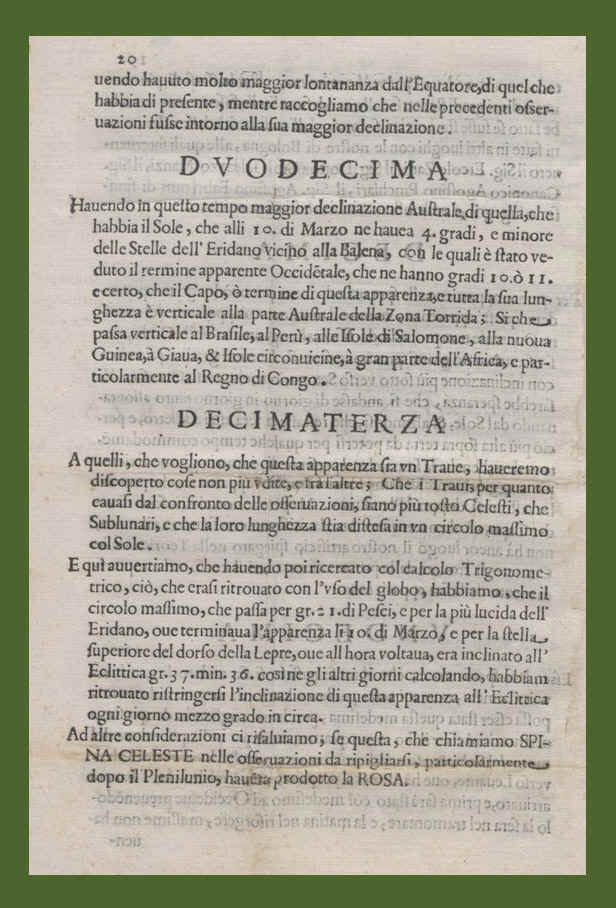 20
uendo hauuto molto maggior lontananza dall'Equatore,di quel che
habbia di presente, mentre raccogliamo che nelle precedenti osser-
uazioni fusse intorno alla sua maggior declinazione.
DVODECIMA
Hauendo in questo tempo maggior declinazione Australe,di quella,che
habbia il Sole, che alli 10. di Marzo ne hauea 4. gradi, e minore
delle Stelle dell' Eridano vicino alla Balena, con le quali è stato ve-
duto il termine apparente Occidẽtale, che ne hanno gradi 10.ò 11.
e certo, che il Capo, ò termine di questa apparenza,e tutta la sua lun-
ghezza è verticale alla parte Australe della Zona Torrida; Si che
passa verticale al Brasile, al Perù, alle Isole di Salomone, alla nuoua
Guinea,à Giaua, & Isole circonuicine,à gran parte dell'Africa, e par-
ticolarmente al Regno di Congo.
DECIMATERZA
A quelli, che vogliono, che questa apparenza sia vn Traue, haueremo
discoperto cose non più vdite, e trà l'altre; Che i Traui, per quanto
cauasi dal confronto delle osseruazioni, siano più tosto Celesti, che
Sublunari, e che la loro lunghezza stia distesa in vn circolo massimo
col Sole.
E quì auuertiamo, che hauendo poi ricercato col calcolo Trigonome-
trico, ciò, che erasi ritrouato con l'vso del globo, habbiamo, che il
circolo massimo, che passa per gr. 21. di Pesci, e per la più lucida dell'
Eridano, oue terminaua l'apparenza li 10. di Marzo, e per la stella
superiore del dorso della Lepre, oue all hora voltaua, era inclinato all'
Eclittica gr. 37. min. 36. così ne gli altri giorni calcolando, habbiam
ritrouato ristringersi l'inclinazione di questa apparenza all' Eclittica
ogni giorno mezzo grado in circa.
Ad altre considerazioni ci risaluiamo, se questa, che chiamiamo SPI-
NA CELESTE nelle osseruazioni da ripigliarsi, particolarmente
dopo il Plenilunio, hauerà prodotto la ROSA.